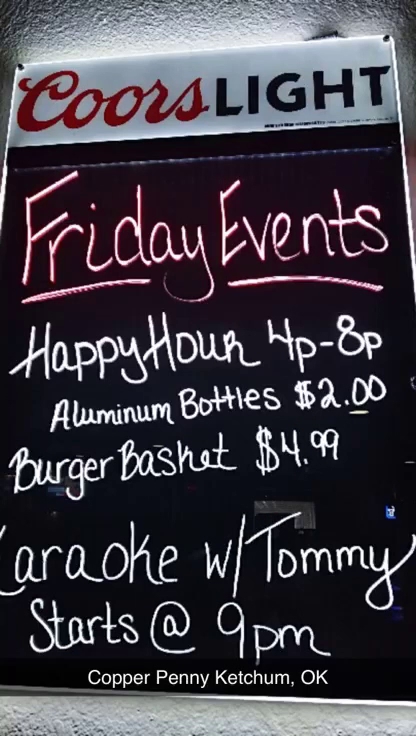 Coors LIGHT
Friday Events
Happy Hour 4p-8p
Aluminum Bottles $2.00
Burger Basket $4.99
Karaoke w/ Tommy
Starts @ 9pm
Copper Penny Ketchum, OK